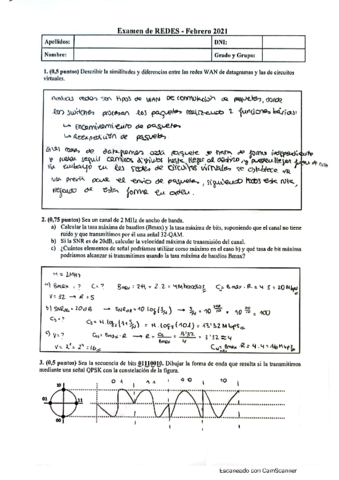 Examen de REDES - Febrero 2021
Apellidos: DNI:
Nombre: Grado y Grupo:
1. (0,5 puntos) Describir la similitudes y diferencias entre las redes WAN de datagramas y las de circuitos
virtuales.
Ambas redes son tipos de WAN de conmutación de paquetes, donde
los switches procesan los paquetes realizando 2 funciones básicas:
↳ Encaminamiento de paquetes
↳ Reexpedición de paquetes
En las redes de datagramas cada paquete se trata de forma independiente
y puede seguir caminos distintos hasta llegar al destino, y pueden llegar
en las redes de circuitos virtuales se establece
previa para el envío de paquetes, siguiendo todos esta ruta,
de esta forma en orden.
2. (0,75 puntos) Sea un canal de 2 MHz de ancho de banda.
a) Calcular la tasa máxima de baudios (Bmax) y la tasa máxima de bits, suponiendo que el canal no tiene
ruido y que transmitimos por él una señal 32-QAM.
b) Si la SNR es de 20dB, calcular la velocidad máxima de transmisión del canal.
c) ¿Cuántos elementos de señal podríamos utilizar como máximo en el caso b) y qué tasa de bit máxima
podríamos alcanzar si transmitimos usando la tasa máxima de baudios Bmax?
H = 2MHz
a) Bmax = ? C = ? Bmax = 2H = 2·2 = 4Mbaudios
V = 32 → R = 5
b) SNR = 20dB → SNR = 10 log (S/N) → = 100
C = H·log₂(1+S/N) = 13'32 Mbps
c) V = ?
V = 2⁴ = 16 = Bmax·R = 4·4 = 16Mbps
3. (0,5 puntos) Sea la secuencia de bits 01110010. Dibujar la forma de onda que resulta si la transmitimos
mediante una señal QPSK con la constelación de la figura.
10
11 01
00
01 11 00 10
Escaneado con CamScanner